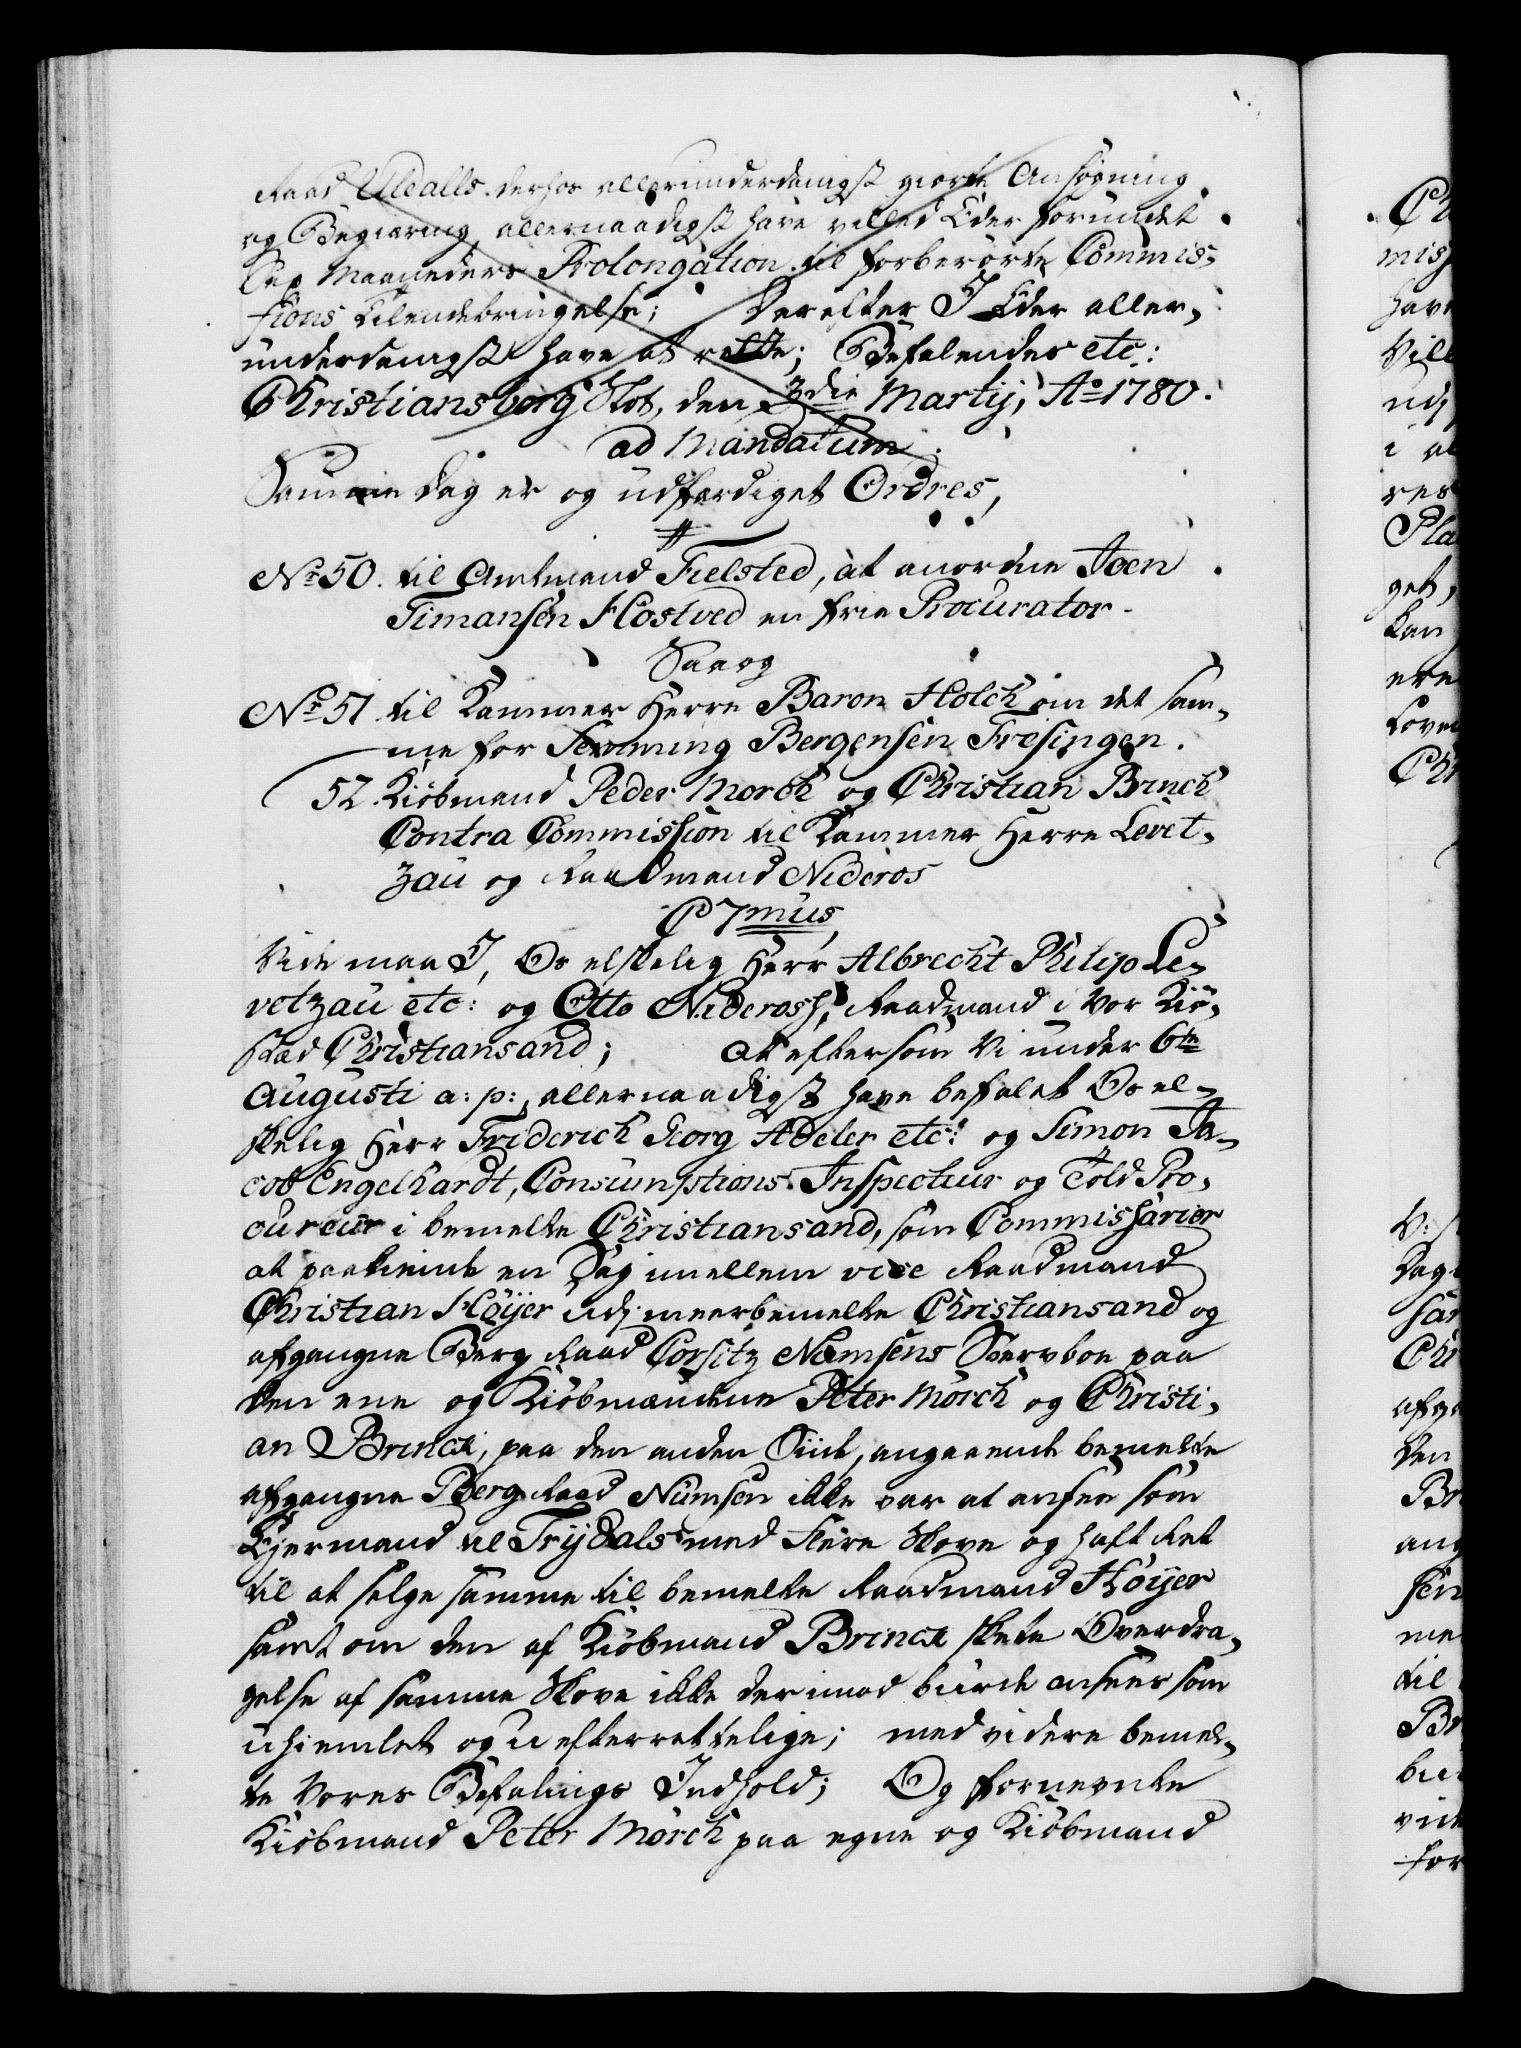 Raad Uldalls derhos allerunderdanigst giorte Ansøgning
og Begiæring, allernaadigst have villed Eder forundt
Sex Maaneders Prolongation til forberørte Commis-
sions Tilendebringelse; Derefter I Eder aller-
underdanigst have at rette; Befalendes etc:
Christiansborg Slot, den 3die Martij, Ao 1780.
ad Mandatum.
Samme Dag er og udfærdiget Ordres,
No 50. til Amtmand Fielsted, at anordne Joen
Timansen Hostved en frie Procurator.
Saa og
No 51. til Kammer Herre Baron Holck om det sam-
me for Bergensen Tresingen.
52. Kiøbmand Peder Morch og Christian Brinch
Contra Commission til Kammer Herre Levet-
zau og Raadmand Nideros
C 7mus,
Vide maa I, Os elskelig Herr Albrecht Philip Le-
vetzau etc: og Otto Niderosf, Raadmand i Vor Kiø-
stæd Christiansand; At eftersom Vi under 6te
Augusti a: p:, allernaadigst have befalet Os el-
skelig Herr Friderich Georg Adeler etc: og Simon Ja-
cob Engelhardt, Consumptions Inspecteur og Told Pro-
cureur i bemelte Christiansand, som Commissarier
at paakiende en Sag imellem vice Raadmand
Christian Høijer udj meerbemelte Christiansand og
afgangne Berg Raad Corfitz Numsens Stervboe paa
den ene og Kiøbmændene Peter Mørch og Christi-
an Brinck, paa den anden Siide, angaaende bemelte
afgangne Berg Raad Numsen ikke var at ansee som
Ejermand til Trijdals med flere Skove og haft Ret
til at selge samme til bemelte Raadmand Høijer
samt om den af Kiøbmand Brinck skete Overdra-
gelse af samme Skove ikke derimod burde ansees som
uhiemlet og u-efterrettelige; med videre bemel-
te Vores Befalings Indhold; Og fornevnte
Kiøbmand Peter Mørch paa egne og Kiøbmand